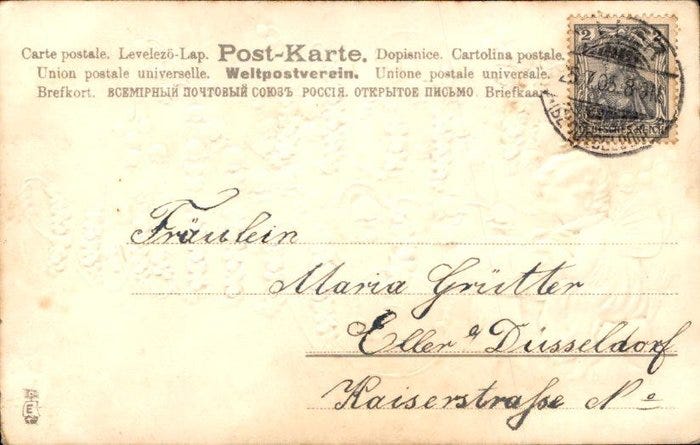 Carte postale. Levelezö-Lap. Post-Karte. Dopisnice. Cartolina postale.
Union postale universelle. Weltpostverein. Unione postale universale.
Brefkort. ВСЕМІРНЫЙ ПОЧТОВЫЙ СОЮЗЪ РОССІЯ. ОТКРЫТОЕ ПИСЬМО. Briefkaart
2
DEUTSCHES REICH
Fräulein
Maria Grütter
Eller a/ Düsseldorf
Kaiserstraße No
E